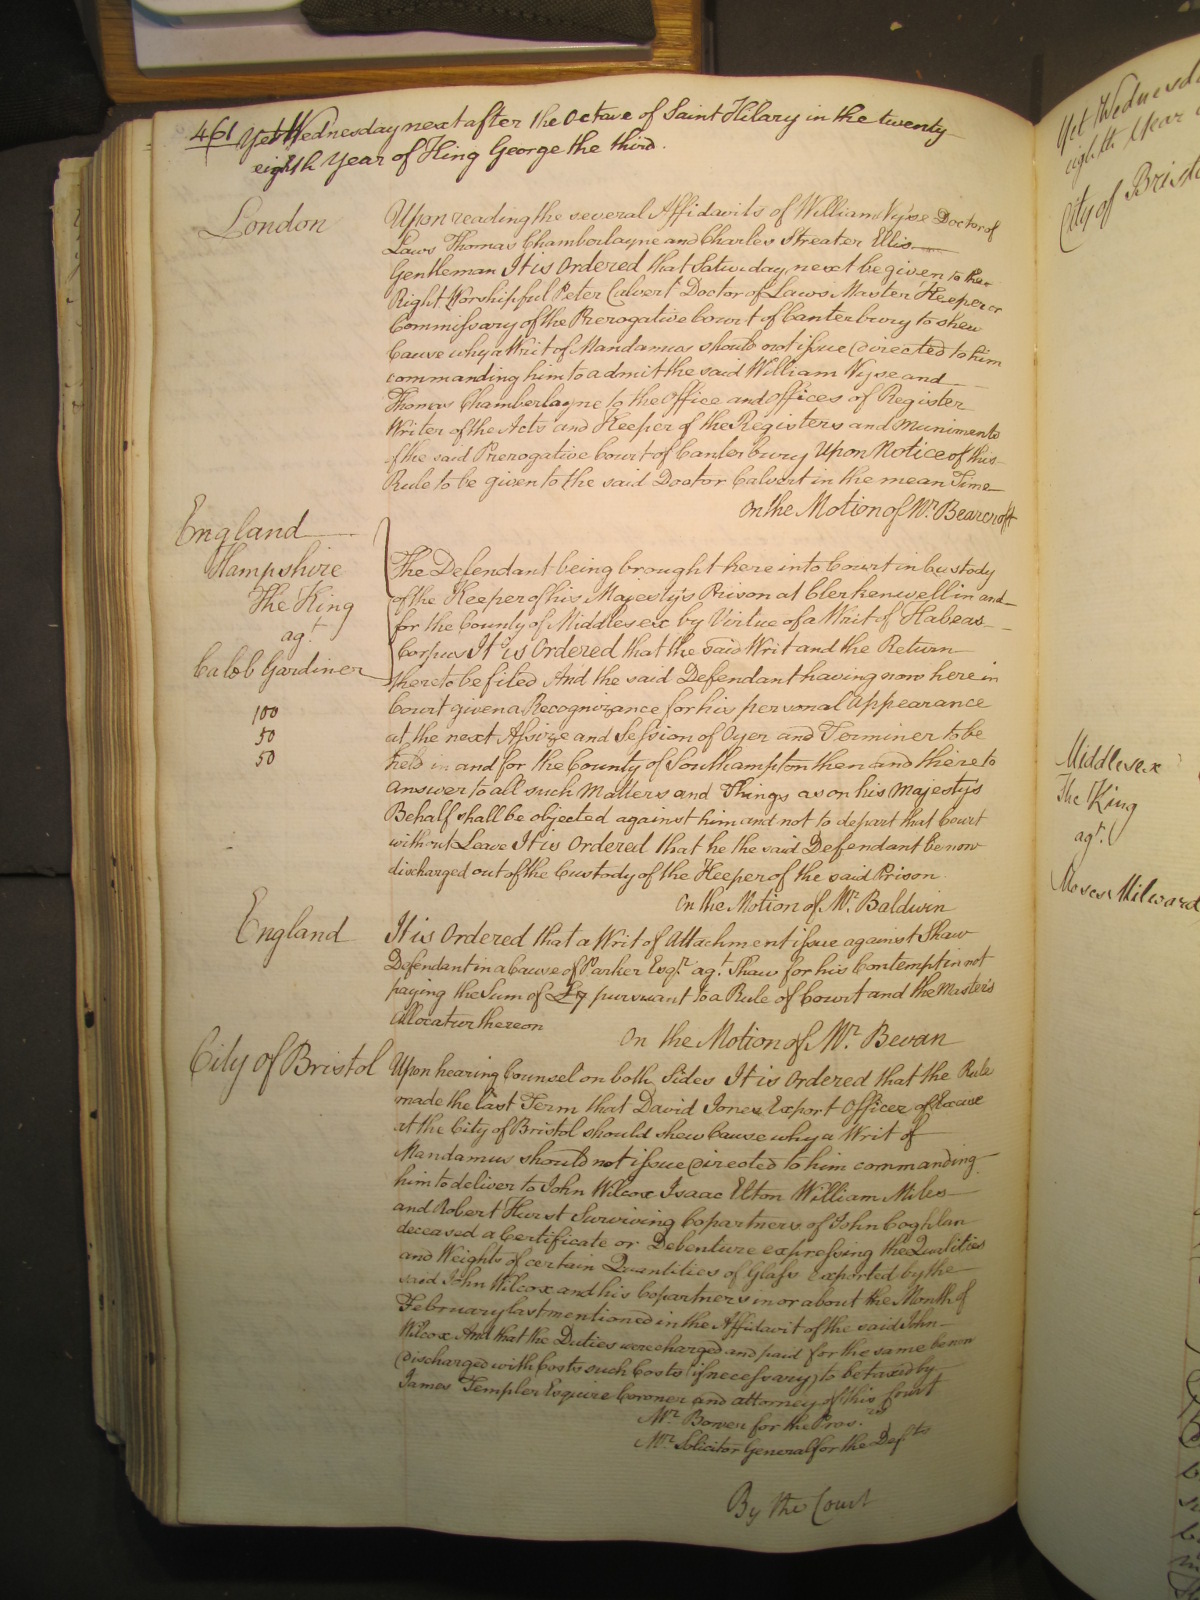 461 Yet Wednesday next after the Octave of Saint Hilary in the twenty
eighth Year of King George the third.
London
Upon reading the several Affidavits of William Vyse Doctor of
Laws Thomas Chamberlayne and Charles Streater Ellis
Gentleman It is Ordered that Saturday next be given to the
Right Worshipful Peter Calvert Doctor of Laws Master Keeper or
Commissary of the Prerogative Court of Canterbury to shew
Cause why a Writ of Mandamus should not issue directed to him
commanding him to admit the said William Vyse and
Thomas Chamberlayne to the Office and Offices of Register
Writer of the Acts and Keeper of the Registers and Muniments
of the said Prerogative Court of Canterbury Upon Notice of this
Rule to be given to the said Doctor Calvert in the mean Time
On the Motion of Mr. Bearcroft
England
Hampshire
The King
agt.
Caleb Gardiner
100
50
50
The Defendant being brought here into Court in Custody
of the Keeper of his Majesty's Prison at Clerkenwell in and
for the County of Middlesex by Virtue of a Writ of Habeas
Corpus It is Ordered that the said Writ and the Return
thereto be filed And the said Defendant having now here in
Court given a Recognizance for his personal Appearance
at the next Assize and Session of Oyer and Terminer to be
held in and for the County of Southampton then and there to
answer to all such Matters and Things as on his Majesty's
Behalf shall be objected against him and not to depart that Court
without Leave It is Ordered that he the said Defendant be now
discharged out of the Custody of the Keeper of the said Prison
On the Motion of Mr. Baldwin
England
It is Ordered that a Writ of Attachment issue against Shaw
Defendant in a Cause of Parker Esqr. agt. Shaw for his Contempt in not
paying the Sum of £7 pursuant to a Rule of Court and the Master's
Allocatur thereon
On the Motion of Mr. Bevan
City of Bristol
Upon hearing Counsel on both Sides It is Ordered that the Rule
made the last Term that David Jones Export Officer of Excise
at the City of Bristol should shew Cause why a Writ of
Mandamus should not issue directed to him commanding
him to deliver to John Wilcox Isaac Elton William Miles
and Robert Hurst Surviving Copartners of John Coghlan
deceased a Certificate or Debenture expressing the Qualities
and Weights of certain Quantities of Glass exported by the
said John Wilcox and his Copartners in or about the Month of
February last mentioned in the Affidavit of the said John
Wilcox And that the Duties were charged and paid for the same be now
discharged with Costs such Costs (if necessary) to be taxed by
James Templer Esquire Coroner and attorney of this Court
Mr. Bower for the Pros.rs
Mr. Solicitor General for the Defts
By the Court
Yet Wednesda
eighth Year
City of Brist
Middlesex
The King
agt.
Moses Milward